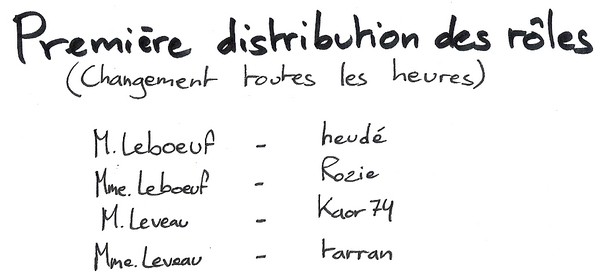 Première distribution des rôles
(Changement toutes les heures)
M. Leboeuf - heudé
Mme. Leboeuf - Rozie
M. Leveau - Kaor 74
Mme. Leveau - tarran